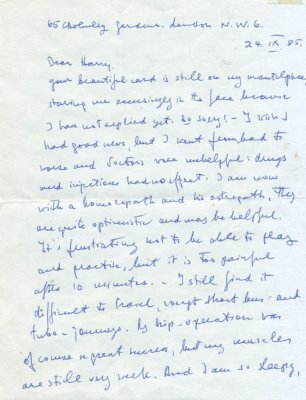 65 Cholmley Gardens. London N.W.6.
24. IX 85.
Dear Harry.
your beautiful card is still on my mantelpiece
staring me accusingly in the face because
I have not replied yet. So sorry! - I wish I
had good news, but I went from bad to
worse and doctors were unhelpful: drugs
and injections had no effect. I am now
with a homoeopath and his osteopath. They
are quite optimistic and may be helpful.
It's frustrating not to be able to play
and practise, but it is too painful
after 10 minutes. - I still find it
difficult to travel, except short bus- and
tube-journeys. My hip-operation was
of course a great success, but my muscles
are still very weak. And I am so sleepy,